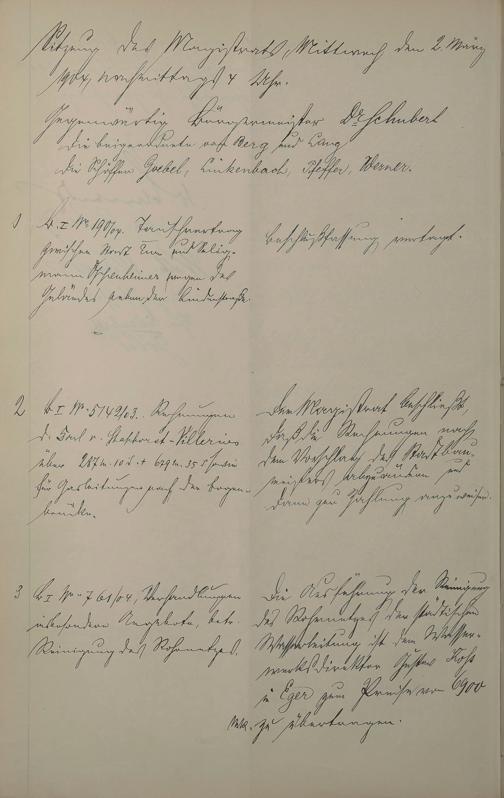 Sitzung des Magistrats, Mittwoch den 2. März
1904, nachmittags 4 Uhr.
Gegenwärtig Bürgermeister Dr Schubert
die beigeordneten von Berg und Lang
die Schöffen Goebel, Linkenbach, Pfeffer, Werner.
1 b. I No 190/04. Tauschvertrag
zwischen Stadt Ems und Selig-
mann Oppenheimer wegen des
Geländes neben der Lindenstraße.
Beschlußfassung vertagt.
2 b I No 5142/03. Rechnungen
d.
über 287 M. 10 + 629 M. 35
für Gasleitungen nach der bogen-
brücke.
Der Magistrat beschließt,
daß die Rechnungen nach
dem Vorschlag des Stadtbau-
meisters abzuändern und
dann zur Zahlung anzuweisen.
3 b I No 761/04, Verhandlungen
insbesondere Angebote, betr.
Reinigung des Rohrnetzes.
Die Ausführung der Reinigung
des Rohrnetzes der städtischen
Wasserleitung ist dem Wasser-
werksdirektor Gustav
in Eger zum Preise von 6900
Mk. zu übertragen.